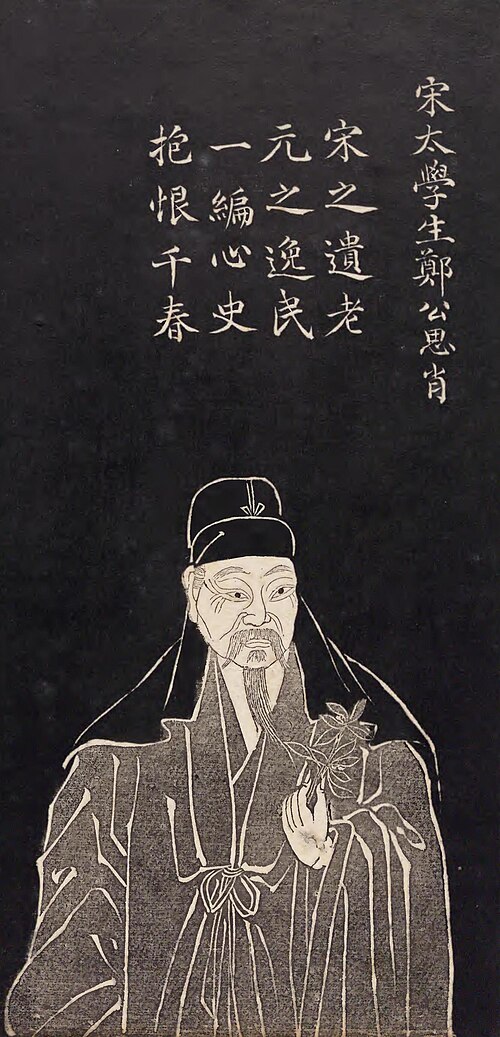 宋太學生鄭公思肖
宋之遺老
元之逸民
一編心史
抱恨千春